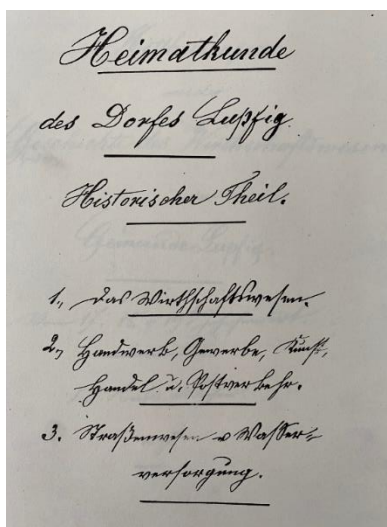 Heimatkunde
des Dorfes Lupfig
Historischer Theil.
1., Das Wirthschaftswesen.
2., Handwerk, Gewerbe, Kunst,
Handel u. Postverkehr.
3. Straßenwesen u Wasser-
versorgung.